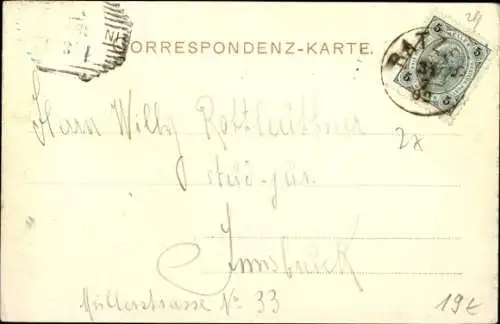 CORRESPONDENZ-KARTE.
Herrn Willy Rottleuthner
stud. jur.
Innsbruck
Müllerstrasse No 33
24
2x
19€
5 5
5 5